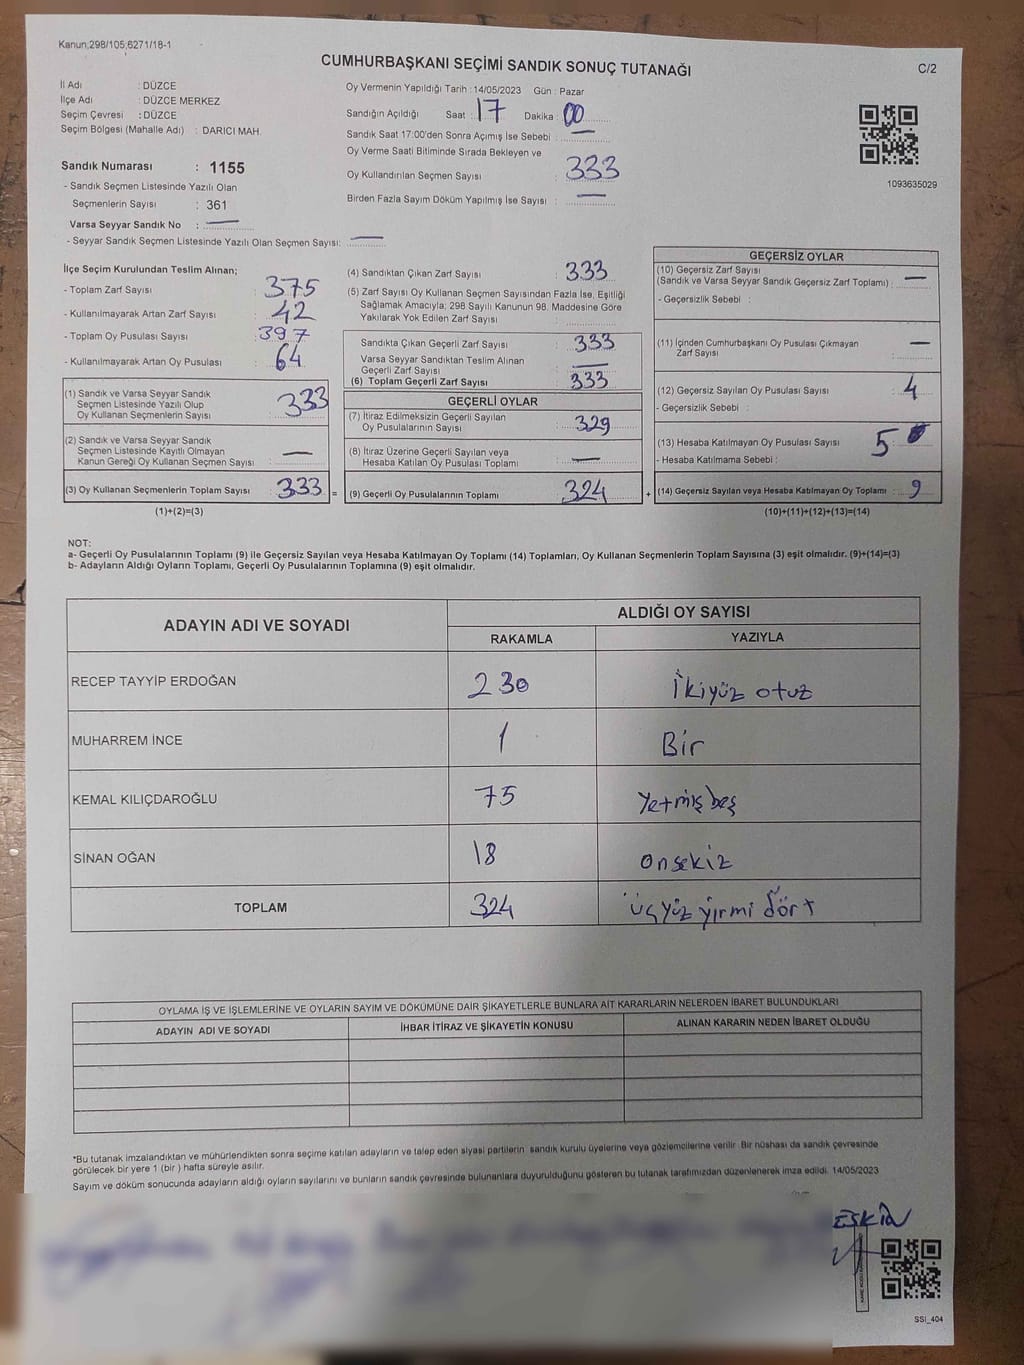 Kanun;298/105;6271/18-1
CUMHURBAŞKANI SEÇİMİ SANDIK SONUÇ TUTANAĞI
C/2
İl Adı : DÜZCE
İlçe Adı : DÜZCE MERKEZ
Seçim Çevresi : DÜZCE
Seçim Bölgesi (Mahalle Adı) : DARICI MAH.
Sandık Numarası : 1155
- Sandık Seçmen Listesinde Yazılı Olan
Seçmenlerin Sayısı : 361
Varsa Seyyar Sandık No : —
- Seyyar Sandık Seçmen Listesinde Yazılı Olan Seçmen Sayısı: —
Oy Vermenin Yapıldığı Tarih : 14/05/2023 Gün : Pazar
Sandığın Açıldığı Saat : 17 Dakika : 00
Sandık Saat 17:00'den Sonra Açılmış İse Sebebi : —
Oy Verme Saati Bitiminde Sırada Bekleyen ve
Oy Kullandırılan Seçmen Sayısı : 333
Birden Fazla Sayım Döküm Yapılmış İse Sayısı : —
1093635029
İlçe Seçim Kurulundan Teslim Alınan;
- Toplam Zarf Sayısı : 375
- Kullanılmayarak Artan Zarf Sayısı : 42
- Toplam Oy Pusulası Sayısı : 397
- Kullanılmayarak Artan Oy Pusulası : 64
(1) Sandık ve Varsa Seyyar Sandık
Seçmen Listesinde Yazılı Olup
Oy Kullanan Seçmenlerin Sayısı : 333
(2) Sandık ve Varsa Seyyar Sandık
Seçmen Listesinde Kayıtlı Olmayan
Kanun Gereği Oy Kullanan Seçmen Sayısı : —
(3) Oy Kullanan Seçmenlerin Toplam Sayısı : 333
(1)+(2)=(3)
(4) Sandıktan Çıkan Zarf Sayısı : 333
(5) Zarf Sayısı Oy Kullanan Seçmen Sayısından Fazla İse, Eşitliği
Sağlamak Amacıyla; 298 Sayılı Kanunun 98. Maddesine Göre
Yakılarak Yok Edilen Zarf Sayısı :
Sandıkta Çıkan Geçerli Zarf Sayısı : 333
Varsa Seyyar Sandıktan Teslim Alınan
Geçerli Zarf Sayısı : —
(6) Toplam Geçerli Zarf Sayısı : 333
GEÇERLİ OYLAR
(7) İtiraz Edilmeksizin Geçerli Sayılan
Oy Pusulalarının Sayısı : 329
(8) İtiraz Üzerine Geçerli Sayılan veya
Hesaba Katılan Oy Pusulası Toplamı : —
= (9) Geçerli Oy Pusulalarının Toplamı : 324
GEÇERSİZ OYLAR
(10) Geçersiz Zarf Sayısı
(Sandık ve Varsa Seyyar Sandık Geçersiz Zarf Toplamı) : —
- Geçersizlik Sebebi :
(11) İçinden Cumhurbaşkanı Oy Pusulası Çıkmayan
Zarf Sayısı : —
(12) Geçersiz Sayılan Oy Pusulası Sayısı : 4
- Geçersizlik Sebebi :
(13) Hesaba Katılmayan Oy Pusulası Sayısı : 5
- Hesaba Katılmama Sebebi :
+ (14) Geçersiz Sayılan veya Hesaba Katılmayan Oy Toplamı : 9
(10)+(11)+(12)+(13)=(14)
NOT:
a- Geçerli Oy Pusulalarının Toplamı (9) ile Geçersiz Sayılan veya Hesaba Katılmayan Oy Toplamı (14) Toplamları, Oy Kullanan Seçmenlerin Toplam Sayısına (3) eşit olmalıdır. (9)+(14)=(3)
b- Adayların Aldığı Oyların Toplamı, Geçerli Oy Pusulalarının Toplamına (9) eşit olmalıdır.
ADAYIN ADI VE SOYADI ALDIĞI OY SAYISI
RAKAMLA YAZIYLA
RECEP TAYYİP ERDOĞAN 230 İkiyüz otuz
MUHARREM İNCE 1 Bir
KEMAL KILIÇDAROĞLU 75 Yetmişbeş
SİNAN OĞAN 18 onsekiz
TOPLAM 324 üçyüz yirmi dört
OYLAMA İŞ VE İŞLEMLERİNE VE OYLARIN SAYIM VE DÖKÜMÜNE DAİR ŞİKAYETLERLE BUNLARA AİT KARARLARIN NELERDEN İBARET BULUNDUKLARI
ADAYIN ADI VE SOYADI İHBAR İTİRAZ VE ŞİKAYETİN KONUSU ALINAN KARARIN NEDEN İBARET OLDUĞU
*Bu tutanak imzalandıktan ve mühürlendikten sonra seçime katılan adayların ve talep eden siyasi partilerin sandık kurulu üyelerine veya gözlemcilerine verilir. Bir nüshası da sandık çevresinde
görülecek bir yere 1 (bir ) hafta süreyle asılır.
Sayım ve döküm sonucunda adayların aldığı oyların sayılarını ve bunların sandık çevresinde bulunanlara duyurulduğunu gösteren bu tutanak tarafımızdan düzenlenerek imza edildi. 14/05/2023
ESKİN
SSI_404